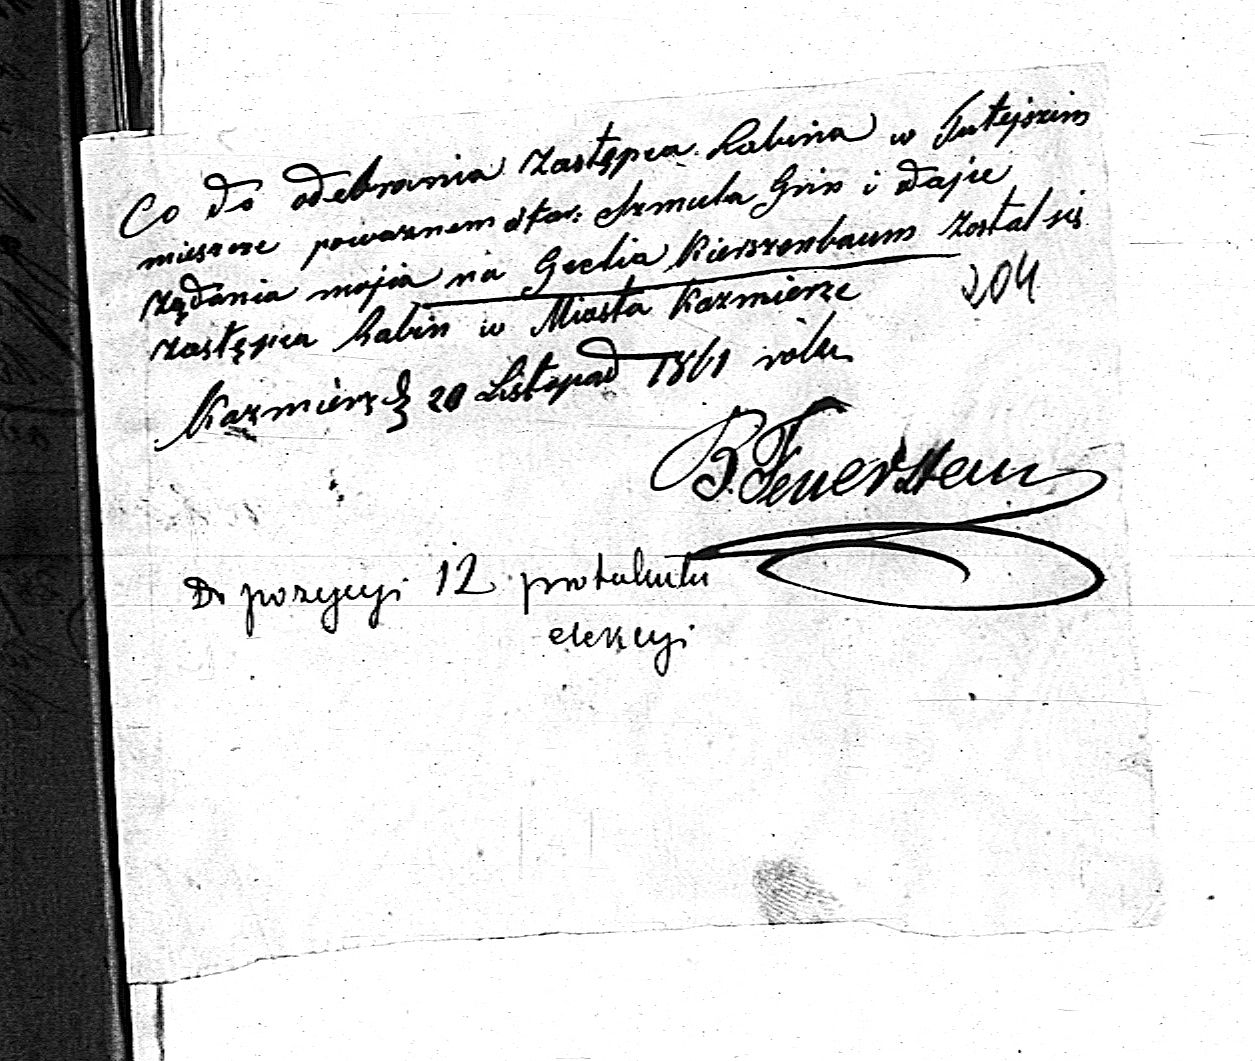 Co do odebrania zastępca Rabina w Tutejszim
miescze powaznem star: Szmula Grin i dajie
rządania mojia na Geclia Kierszenbaum zostal się
zastępca Rabin w Miasta Kazmierze
204
Kazmierz d 20 Listopad 1861 roku
B. Feuerstein
Do pozycyi 12 protokułu
elekcyi